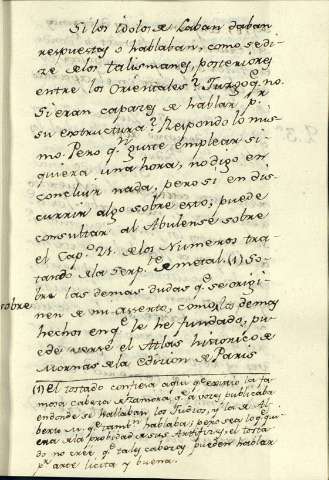 Si los idolos de Laban daban
respuestas o hablaban, como se di-
ze de los talismanes, posteriores
entre los Orientales? Juzgo q.e no.
Si eran capaces de hablar, p.r
su extructura? Respondo lo mis-
mo. Pero q.n guste emplear si-
quiera una hora, no digo en
concluir nada, pero si en dis-
currir algo sobre esto; puede
consultar al Abulense sobre
el Cap.o 21. de los Numeros tra
tando de la Serp.te de metal. (1) So-
bre las demas dudas q.e se origi-
nen de mi asserto, como los demas
hechos en q.e le he fundado, pu-
ede verse el Atlas historico de
Mornas de la edicion de Paris
(1) El tostado confiesa aqui q.e existio la fa-
mosa cabeza de Zamora, q.e a voces publicaba
en donde se hallaban los Judios, y la de Al-
berto M. q.e tamb.n hablaba; pero sea lo q.e qui-
era de la probidad de sus Artifizes, el tosta-
do no cree q.e tales cabezas pueden hablar
p.r arte licita y buena.
sobre